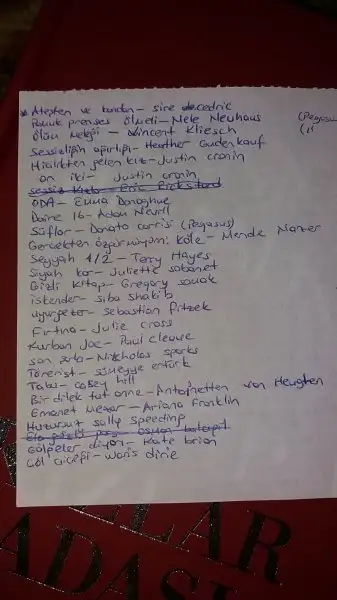 * Ateşten ve kandan - sire cedric
Pamuk prenses Ölmeli - Nele Neuhaus (Pegasus
Ölüm Meleği - Vincent Kliesch
Sessizliğin ağırlığı - Heather Gudenkauf
Hiçlikten gelen kız - Justin cronin
on iki - Justin cronin
ODA - Emma Donoghue
Daire 16 - Adam Nevill
Süflör - Donato carrisi (Pegasus)
Gerçekten özgürmüyüm: Köle - Mende Nazer
Seyyah 1/2 - Terry Hayes
Siyah kar - Juliette sobanet
Gizli Kitap - Gregory
iskender - siba shakib
uyurgezer - Sebastian Fitzek
Fırtına - Julie cross
Kurban Joe - Paul cleave
son - Nicholas sparks
Törerist - sümeyye ertürk
Tabu - casey hill
Bir dilek tut anne - Antoinetten von Heugten
Emanet Mezar - Ariana Franklin
Huzursuz sally Speeding
Gölgeler diyarı - Kate brian
Çöl çiçeği - Waris dirie
LAR
ADASI